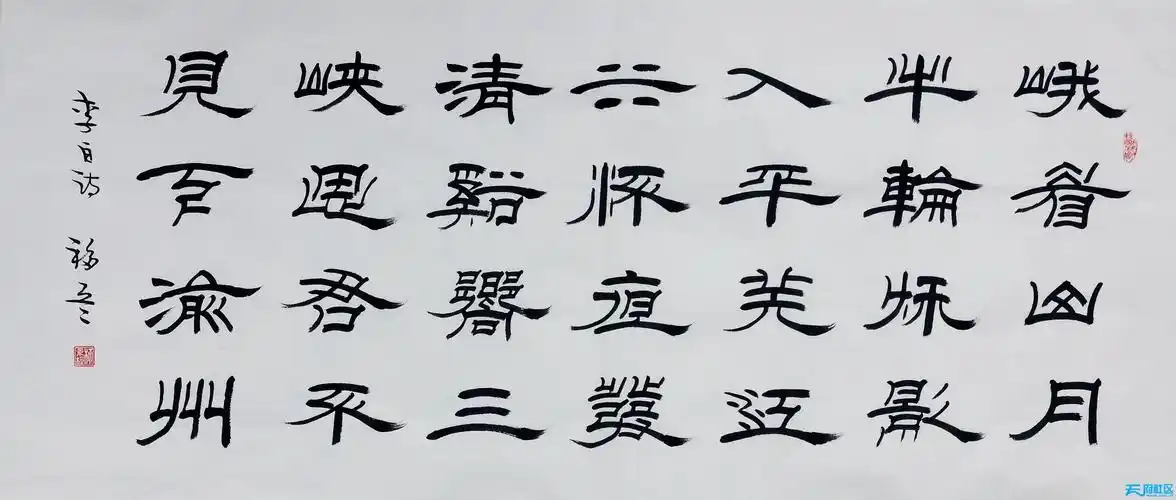 峨眉山月
半輪秋影
入平羌江
水流夜發
清谿嚮三
峽思君不
見下渝州
李白詩
天府社区